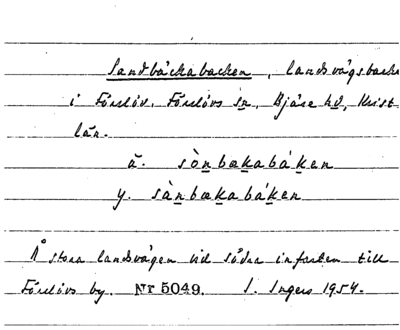 Sandbäckabacken, landsvägsbacke
i Förslöv. Förslövs sn, Bjäre hd, Krist.
län.
ä. sònbækabáken
y. sànbækabáken
Å stora landsvägen vid södra infarten till
Förslövs by. Nr 5049. I. Ingers 1954.